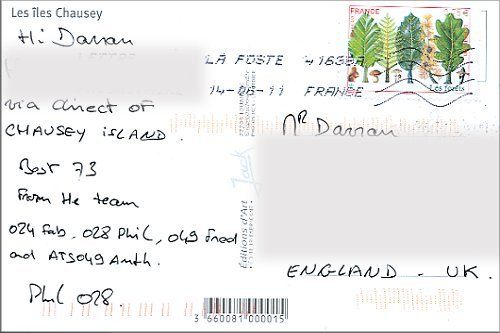 Les îles Chausey
Hi Darran
via direct of
CHAUSEY ISLAND.
Best 73
From the team
024 Fab, 028 Phil, 049 Fred
and AT3049 Anth.
Phil 028.
LA POSTE 41638A
14-06-11 FRANCE
FRANCE
Les forêts
Jack
Éditions d'Art
Mr Darran
ENGLAND - UK.
3 660081 000015